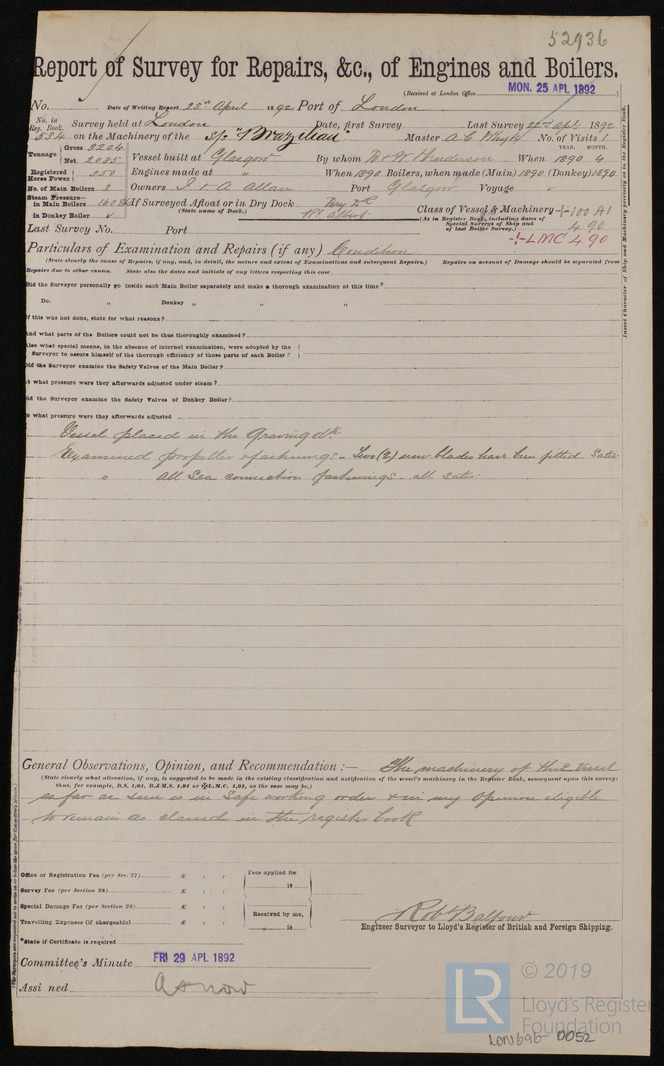 52936
Report of Survey for Repairs, &c., of Engines and Boilers.
(Received at London Office MON. 25 APL 1892
No. Date of Writing Report 23rd April 1892 Port of London
No. in Reg. Book. Survey held at London Date, first Survey Last Survey 22nd Apl 1892
534 on the Machinery of the "Brazilian" Master No. of Visits 1
YEAR. MONTH.
Tonnage Gross 3204 Net 2085 Vessel built at Glasgow By whom D & W Henderson When 1890 4
Registered Horse Power 350 Engines made at " When 1890 Boilers, when made (Main) 1890 (Donkey) 1890
No. of Main Boilers 3 Owners J & A. Allan Port Glasgow Voyage
Steam Pressure in Main Boilers 160 If Surveyed Afloat or in Dry Dock Dry Dk
(State name of Dock.) Rl Albert
Class of Vessel & Machinery 100 A1
(As in Register Book, including dates of Special Surveys of Ship and of last Boiler Survey.) 4.90
in Donkey Boiler
Last Survey No. Port
LMC 4 90
Particulars of Examination and Repairs (if any) Condition
(State clearly the cause of Repairs, if any, and, in detail, the nature and extent of Examinations and subsequent Repairs.) Repairs on account of Damage should be separated from
Repairs due to other causes. State also the dates and initials of any letters respecting this case
Did the Surveyor personally go inside each Main Boiler separately and make a thorough examination at this time?
Do. " Donkey " " "
If this was not done, state for what reasons?
And what parts of the Boilers could not be thus thoroughly examined?
Also what special means, in the absence of internal examination, were adopted by the
Surveyor to assure himself of the thorough efficiency of those parts of each Boiler?
Did the Surveyor examine the Safety Valves of the Main Boiler?
At what pressure were they afterwards adjusted under steam?
Did the Surveyor examine the Safety Valves of Donkey Boiler?
To what pressure were they afterwards adjusted
Vessel placed in the Graving dk
Examined propeller & fastenings - Two (2) new blades have been fitted Satis:
" All Sea connection fastenings - all satis:
General Observations, Opinion, and Recommendation :— The machinery of this Vessel
(State clearly what alteration, if any, is suggested to be made in the existing classification and notification of the vessel's machinery in the Register Book, consequent upon this survey:
thus, for example, B.S. 1,91, B.&M.S. 1,91 or ✠L.M.C. 1,91, as the case may be.)
so far as seen is in Safe working order & in my opinion eligible
to remain as classed in the register book
Office or Registration Fee (per Sec. 27) £ : :
Survey Fee (per Section 28) £ : :
Special Damage Fee (per Section 28) £ : :
Travelling Expenses (if chargeable) £ : :
Fees applied for
18
Received by me,
18
*State if Certificate is required
Rob Balfour
Engineer Surveyor to Lloyd's Register of British and Foreign Shipping.
Committee's Minute FRI 29 APL 1892
Assi ned As now
Insert Character of Ship and Machinery precisely as in the Register Book.
LR © 2019
Lloyd's Register
Foundation
LON696-0052